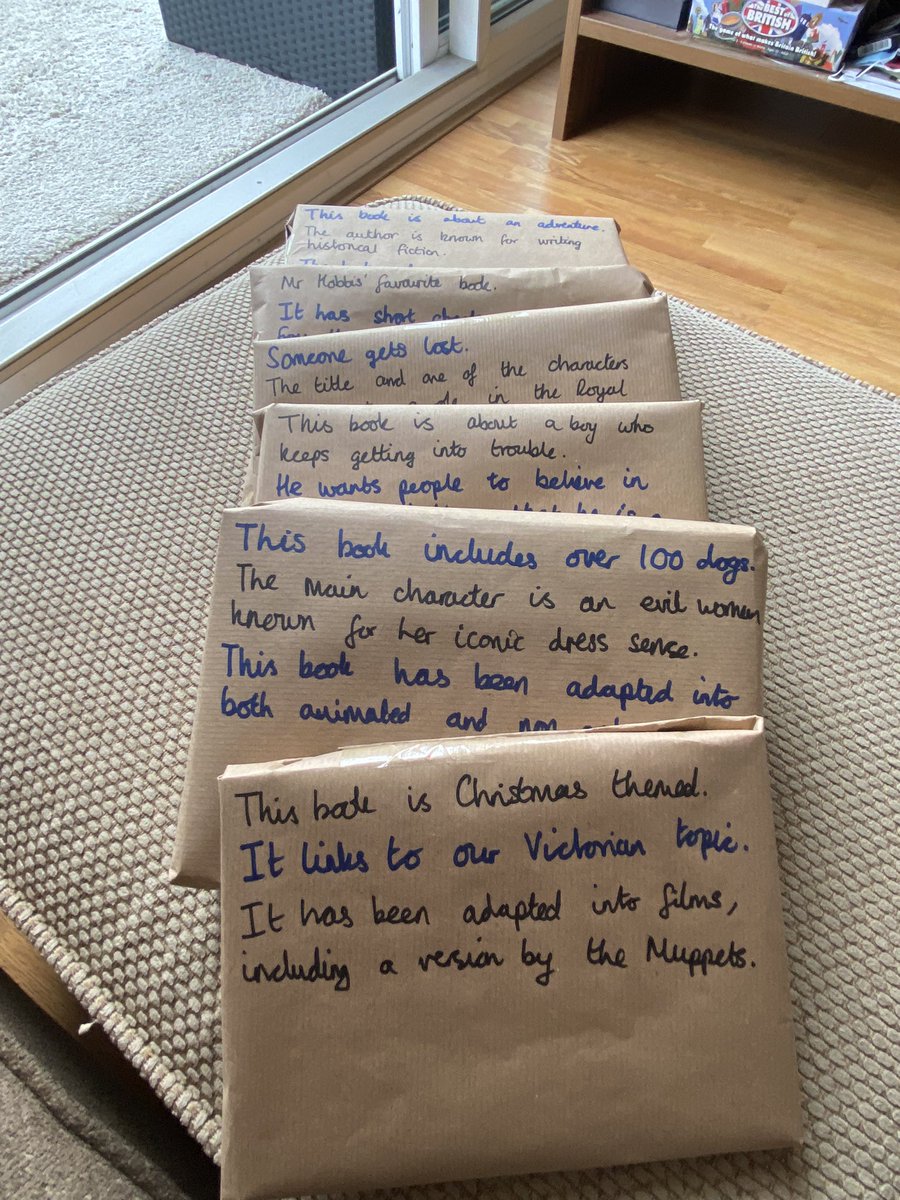 The BEST of BRITISH
The game of what makes Britain British!
This book is about an adventure.
The author is known for writing
historical fiction.
Mr Hobbis' favourite book.
It has short
Someone gets lost.
The title and one of the characters
in the Royal
This book is about a boy who
keeps getting into trouble.
He wants people to believe in
This book includes over 100 dogs.
The main character is an evil woman
known for her iconic dress sense.
This book has been adapted into
both animated and non
This book is Christmas themed.
It links to our Victorian topic.
It has been adapted into films,
including a version by the Muppets.